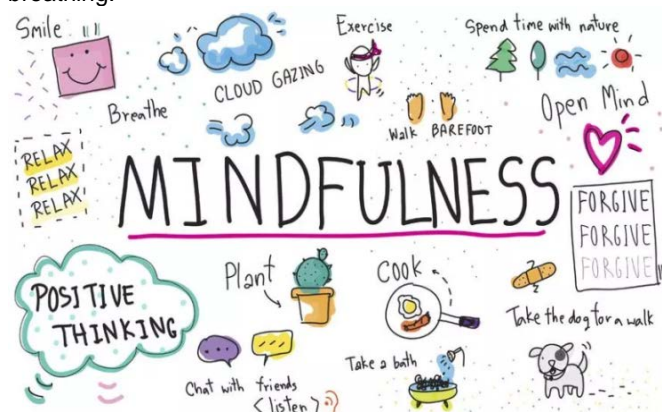 breathing.
Smile
Exercise
Spend time with nature
Breathe
CLOUD GAZING
Walk BAREFOOT
Open Mind
RELAX
RELAX
RELAX
MINDFULNESS
FORGIVE
FORGIVE
FORGIVE
POSITIVE
THINKING
Plant
COOK
Take the dog for a walk
Chat with friends
<listen>
Take a bath